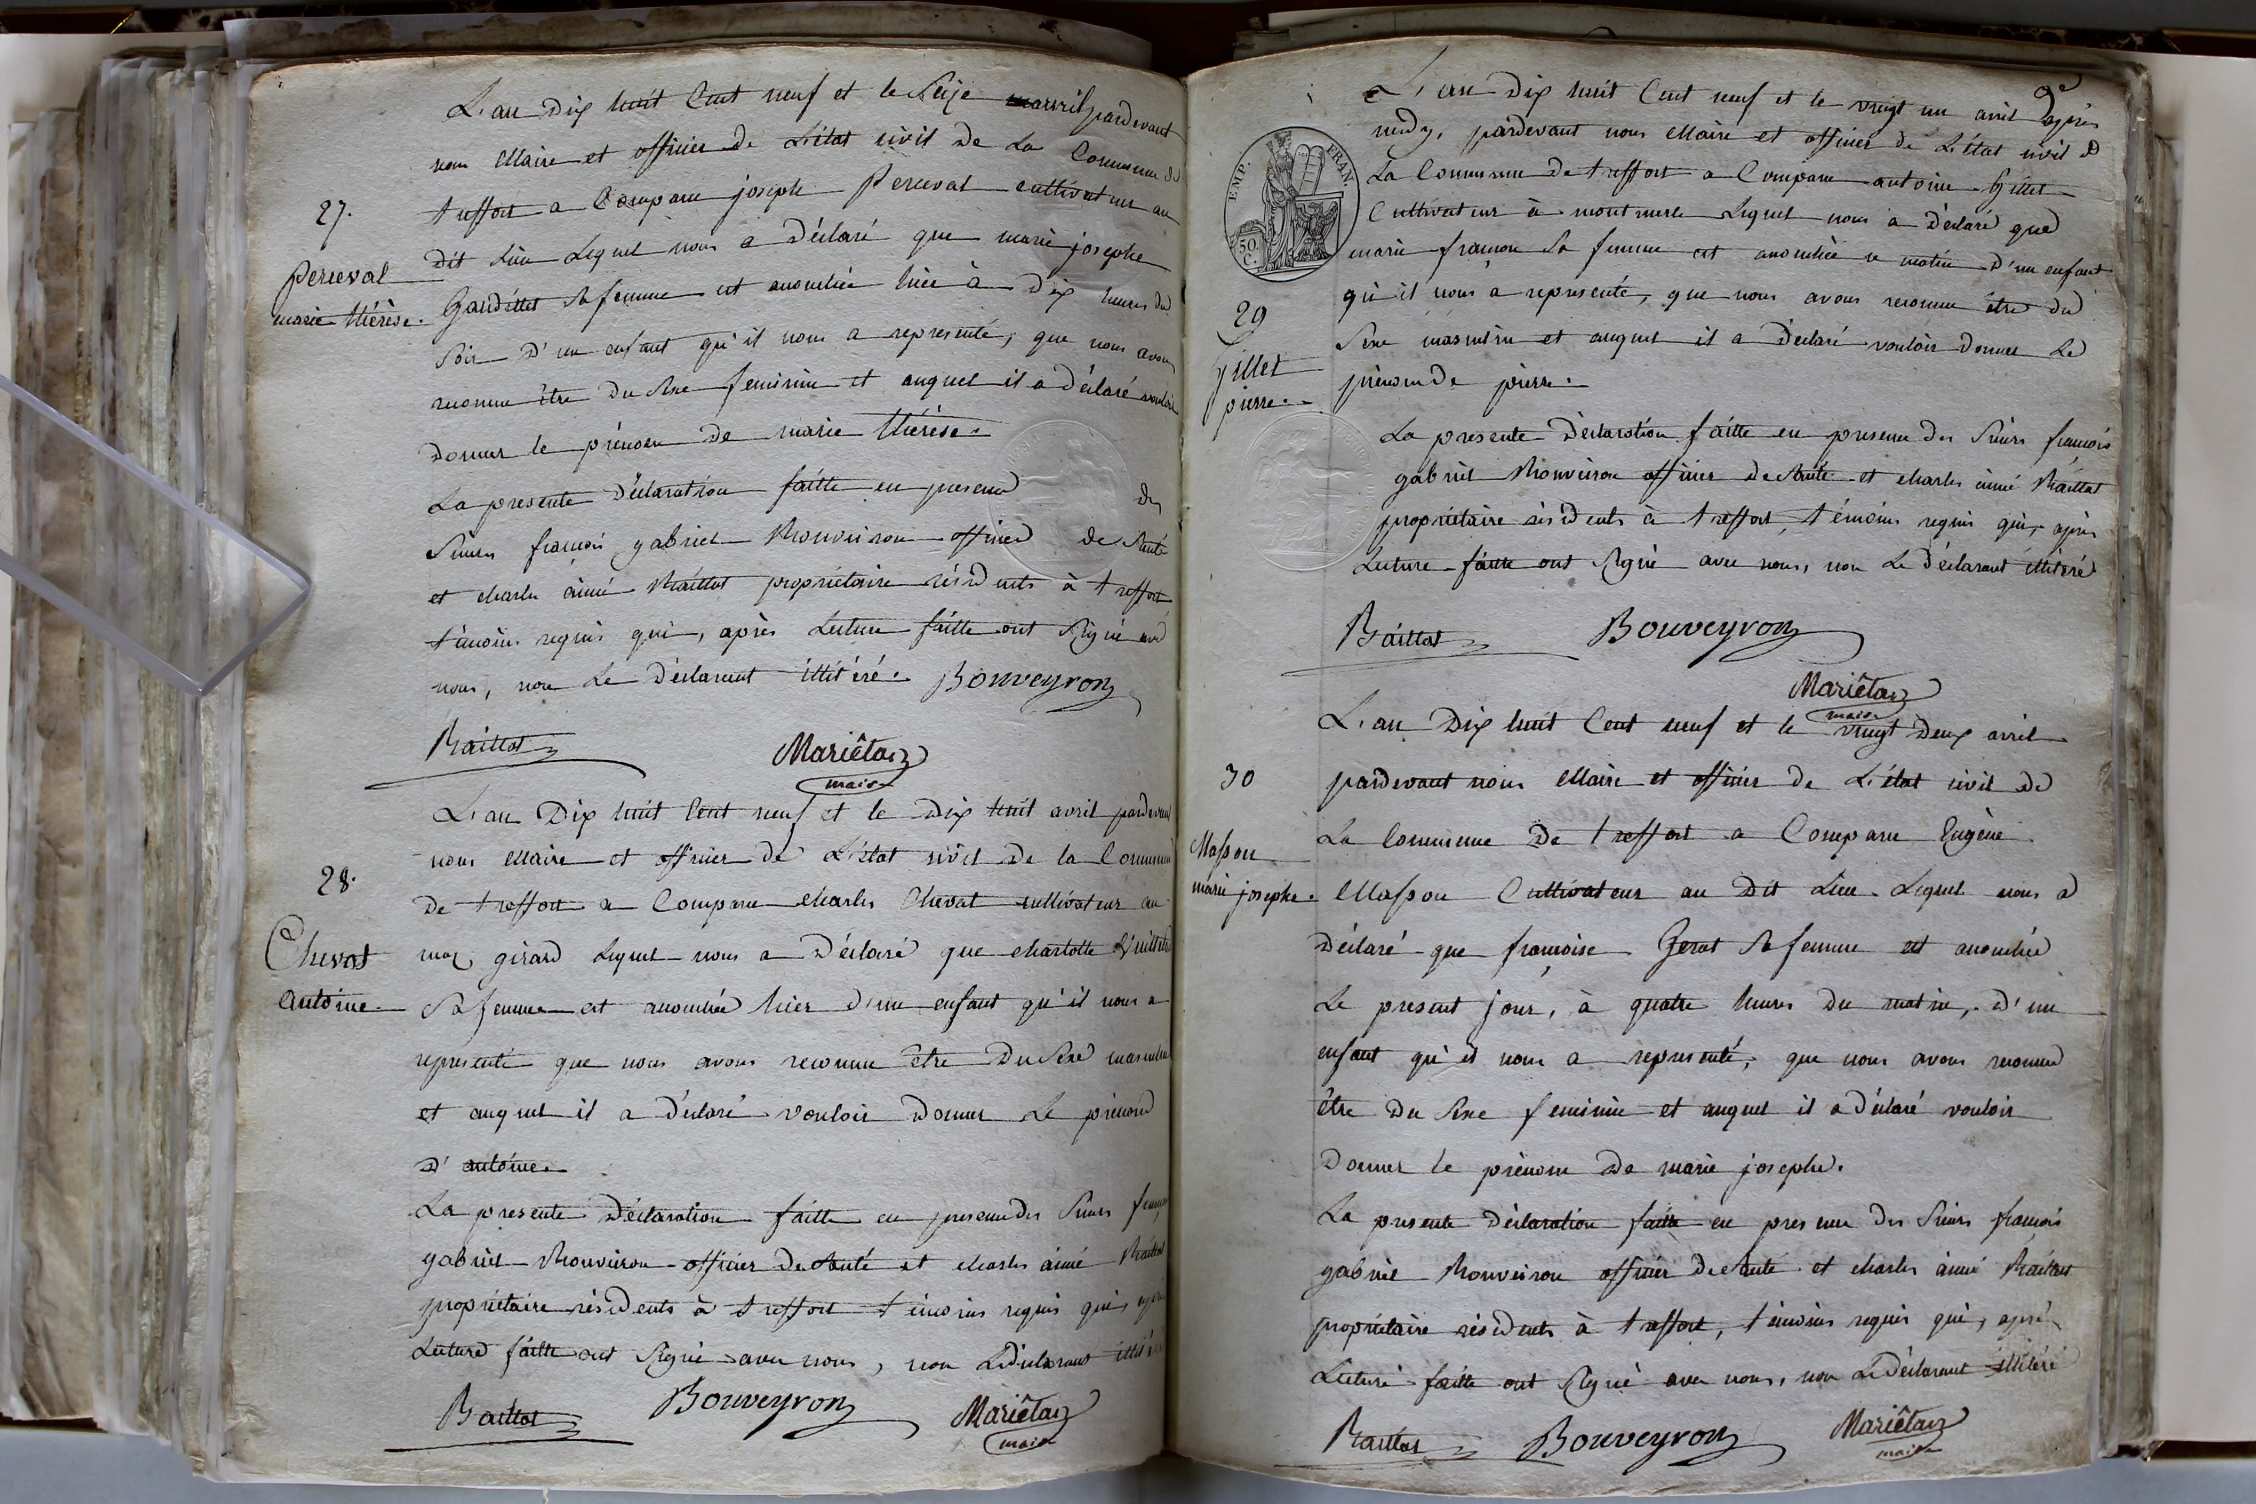 L'an Dix huit Cent neuf et le Seize avril pardevant
nous Maire et officier de L'état civil de La Commune de
treffort a Comparu joseph Perceval cultivateur au
27.
dit Lieu Lequel nous a Déclaré que marie josephe
Perceval
marie thérèse.
Gandillet Sa femme est accouchée hier à Dix heures du
Soir D'un enfant qu'il nous a representé, que nous avons
reconnu être du Sexe feminin et auquel il a Déclaré vouloir
donner le prénom de marie thérèse.
La presente Déclaration faitte en presence des
Sieurs françois gabriel Bouveiron officier de Santé
et charles aimé Baillat propriétaire résidents à treffort
témoins requis qui, après Lecture faitte ont Signé avec
nous, non Le Déclarant illitéré. Bouveyron
Baillat Mariétan
maire
L'an Dix huit Cent neuf et le Dix huit avril pardevant
nous Maire et officier de L'état civil de la Commune
28.
de treffort a Comparu charles Chevat cultivateur au
Chevat
Antoine.
mas girard Lequel nous a Déclaré que charlotte
Sa femme est accouchée hier d'un enfant qu'il nous a
representé que nous avons reconnu être Du Sexe masculin
et auquel il a déclaré vouloir Donner Le prénom
D'antoine.
La presente Déclaration faitte en presence des Sieurs françois
gabriel Bouveiron officier de Santé et charles aimé Baillat
propriétaire résidents à treffort témoins requis qui, après
Lecture faitte ont Signé avec nous, non Le Déclarant illitéré
Baillat Bouveyron Mariétan
maire
L'an Dix huit Cent neuf et le vingt un avril après
midy, pardevant nous Maire et officier de L'état civil de
EMP. FRAN.
50 C.
La Commune de treffort a Comparu antoine Gillet
Cultivateur à montmerle Lequel nous a Déclaré que
marie françon Sa femme est accouchée ce matin D'un enfant
qu'il nous a representé, que nous avons reconnu être du
29
Gillet
pierre.
Sexe masculin et auquel il a Déclaré vouloir Donner Le
prénom de pierre.
La presente Déclaration faitte en presence des Sieurs françois
gabriel Bouveiron officier de Santé et charles aimé Baillat
propriétaire résidents à treffort, témoins requis qui, après
Lecture faitte ont Signé avec nous, non Le Déclarant illitéré
Baillat Bouveyron
Mariétan
maire
L'an Dix huit Cent neuf et le vingt Deux avril
30
pardevant nous Maire et officier de L'état civil de
La Commune De treffort a Comparu Eugène
Masson
marie josephe.
Masson Cultivateur au Dit Lieu Lequel nous a
Déclaré que françoise Sa femme est accouchée
Le present jour, à quatre heures du matin, D'un
enfant qu'il nous a representé, que nous avons reconnu
être Du Sexe feminin et auquel il a Déclaré vouloir
Donner le prénom De marie josephe.
La presente Déclaration faitte en presence des Sieurs françois
gabriel Bouveiron officier de Santé et charles aimé Baillat
propriétaire résidents à treffort, témoins requis qui, après
Lecture faitte ont Signé avec nous, non Le Déclarant illitéré
Baillat Bouveyron Mariétan
maire